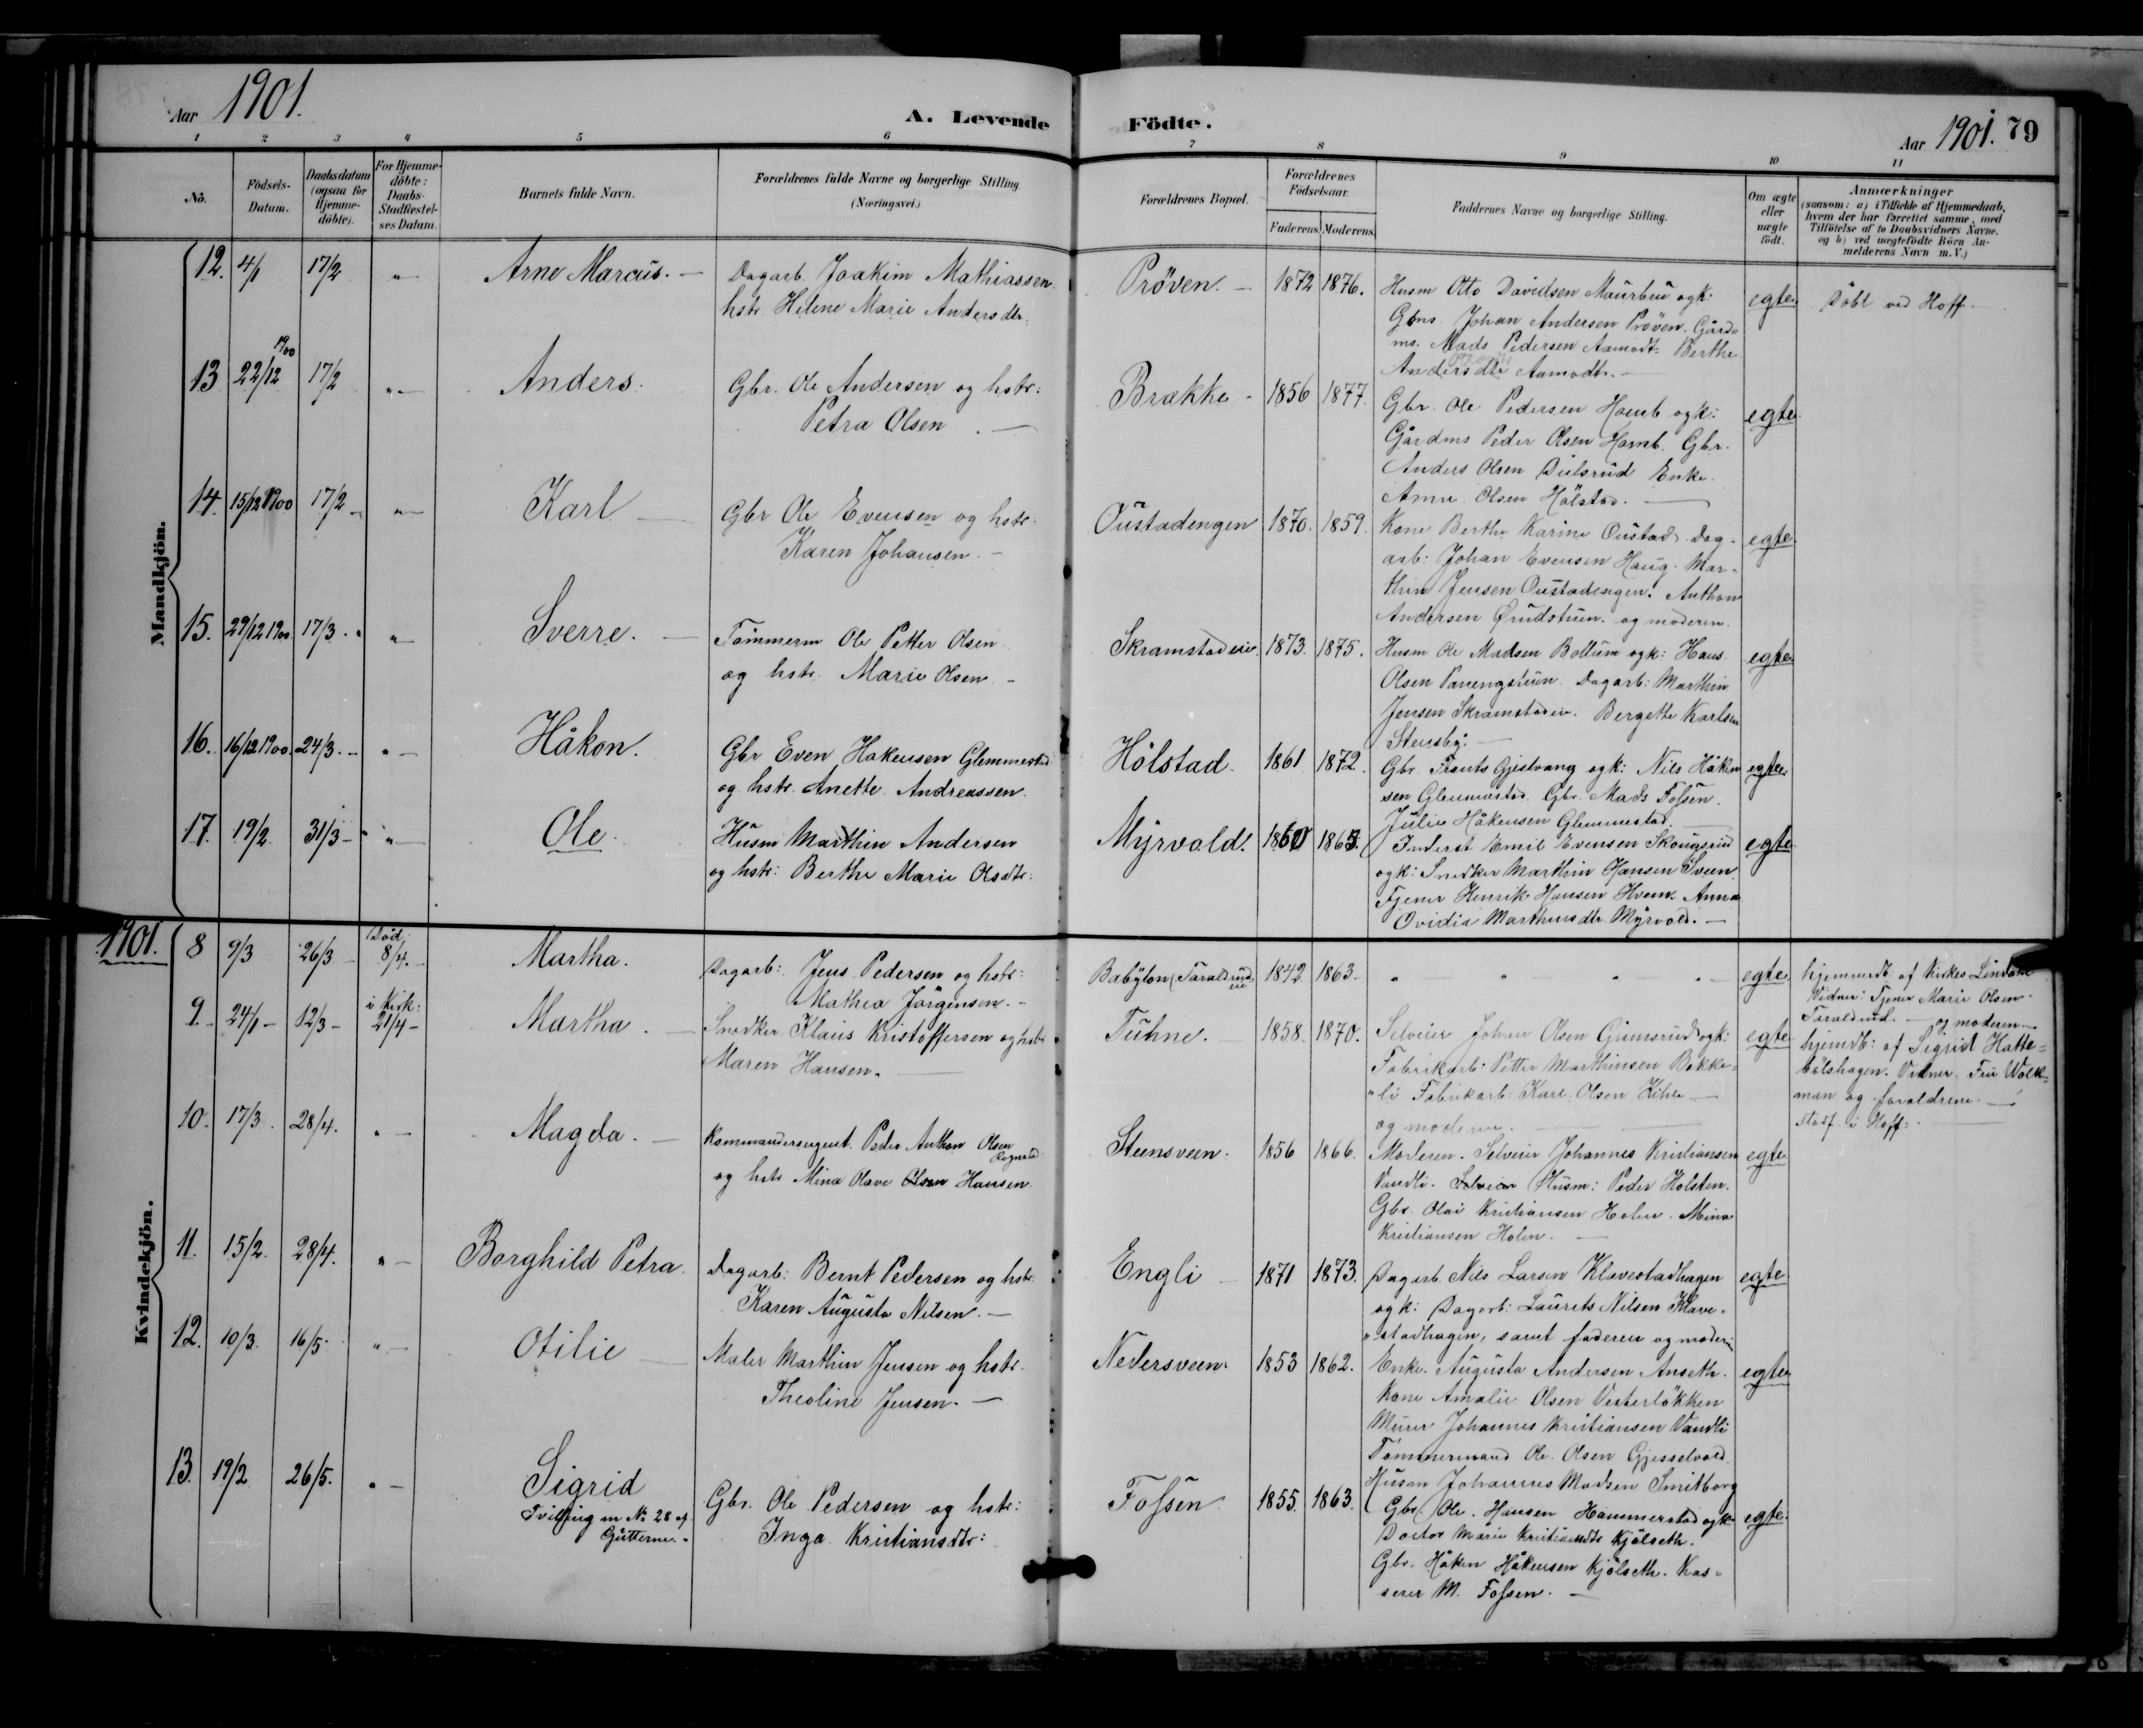 Aar 1901.
A. Levende Födte.
Aar 1901. 79
1 2 3 4 5 6 7 8 9 10 11
No.
Födsels-Datum.
Daabsdatum (ogsaa for Hjemme-döbte).
For Hjemme-döbte: Daabs-Stadfæstel-ses Datum.
Barnets fulde Navn.
Forældrenes fulde Navne og borgerlige Stilling. (Næringsvei.)
Forældrenes Bopæl.
Forældrenes Födselsaar.
Faderens. Moderens.
Faddernes Navne og borgerlige Stilling.
Om ægte eller uægte födt.
Anmærkninger
(saasom: a) i Tilfælde af Hjemmedaab,
hvem der har forrettet samme, med
Tilföielse af to Daabsvidners Navne.
og b) ved uægtefödte Börn An-
melderens Navn m. V.)
Mandkjön.
12. 4/1 17/2 " Arne Marcus. — Dagarb. Joakim Mathiassen
hstr. Helene Marie Andersdtr.
Pröven. — 1872 1876. Husm Otto Davidsen Maurbu og k:
Gbrs. Johan Andersen Pröven. Gård-
ms. Mads Pedersen Aamodt. Berthe
Andersdtr Aamodt. —
egte. Döbt ved Hoff.
13 22/12 1900 17/2 " Anders. Gbr. Ole Andersen og hstr:
Petra Olsen. —
Brække. 1856 1877. Gbr. Ole Pedersen Homb og k:
Gårdms Peder Olsen Homb. Gbr.
Anders Olsen Enke.
Anne Olsen Hölstad. —
egte.
14. 15/12 1900 17/2 " Karl — Gbr Ole Evensen og hstr:
Karen Johansen. —
Oustadengen 1870. 1859. Kone Berthe Karine Oustad. Dag-
arb: Johan Evensen Haug. Mar-
thin Jensen Oustadengen. Anthon
Andersen og moderen.
egte.
15. 29/12 1900. 17/3. " Sverre. — Tömmerm Ole Petter Olsen
og hstr. Marie Olsen. —
Skramstadeie. 1873. 1875. Husm Ole Madsen Bollum og k: Hans
Olsen Dagarb: Marthin
Jensen Skramstadeie. Bergette Karlsen
Stensby. —
egte.
16. 16/12 1900. 24/3. " Håkon. Gbr Even Hakensen Glemmestad
og hstr. Anette Andreassen.
Hölstad. 1861 1872. Gbr. Frants Gjestvang og k: Nils Håken-
sen Glemmestad. Gbr. Mads Fossen.
Julie Håkensen Glemmestad.
egte.
17. 19/2. 31/3 " Ole. Husm Marthin Andersen
og hstr: Berthe Marie Olsdtr.
Myrvold. 1860 1865. Inderst Emil Evensen Skougsrud
og k: Snedker Marthin Hansen Sveen.
Tjener Henrik Hansen Anna
Ovidia Marthinsdtr Myrvold. —
egte.
Kvindekjön.
1901. 8 9/3 26/3 Död 8/4. Martha. Dagarb: Jens Pedersen og hstr:
Mathea Jörgensen. —
Babylon (Taraldrud eie 1842. 1863. " " " " egte.
hjemmedt. af Kirkes. Lindahl
Vidner: Tjener Marie Olsen
Taraldrud. — og moderen —
9. 24/1 12/3 i Kirk: 21/4 Martha. — Snedker Klaus Kristoffersen og hstr
Maren Hansen. —
Tuhne. — 1858. 1870. Selveier Johan Olsen og k:
Fabrikarb: Petter Marthinsen Bakke-
"li Fabrikarb: Karl Olsen Kihle —
og moderen. —
egte.
hjemdt: af Sigrid Hatte-
bölshagen. Vidner. Fru Wolk-
man og forældrene. —
stadf. i Hoff:
10. 17/3. 28/4. " Magda. — Kommandersergeant. Peder Anthon Olsen
Rognstad
og hstr Mina Olave Olsen Hansen.
Steensveen. 1856 1866. Moderen. Selveier Johannes Kristiansen
Vandli. Selveier Husm: Peder Holsten.
Gbr. Olai Kristiansen Holen. Mina
Kristiansen Holen. —
egte.
11. 15/2. 28/4. " Borghild Petra. Dagarb: Bernt Pedersen og hstr:
Karen Augusta Nilsen. —
Engli — 1871 1873. Dagarb. Nils Larsen Klavestadhagen
og k: Dagarb: Laurits Nilsen Klave-
"stadhagen, samt faderen og moderen
egte.
12. 10/3. 16/5. " Otilie — Maler Marthin Jensen og hstr.
Theoline Jensen. —
Nedersveen. 1853 1862. Enke. Augusta Andersen Anseth.
Kone Amalie Olsen Vesterlökken
Murer Johannes Kristiansen Vandli
Tömmermand Ole Olsen Gjesselvold.
egte.
13. 19/2 26/5. " Sigrid
Tvilling m No 28 af
Gutterne.
Gbr. Ole Pedersen og hstr:
Inga Kristiansdtr:
Fossen 1855. 1863. Husm Johannes Madsen Smitborg
Gbr. Ole Hansen Hammerstad og k.
Doctor Marie Kristiansdtr Kjölseth.
Gbr. Håken Håkensen Kjölseth. Kas-
serer M. Fossen. —
egte.